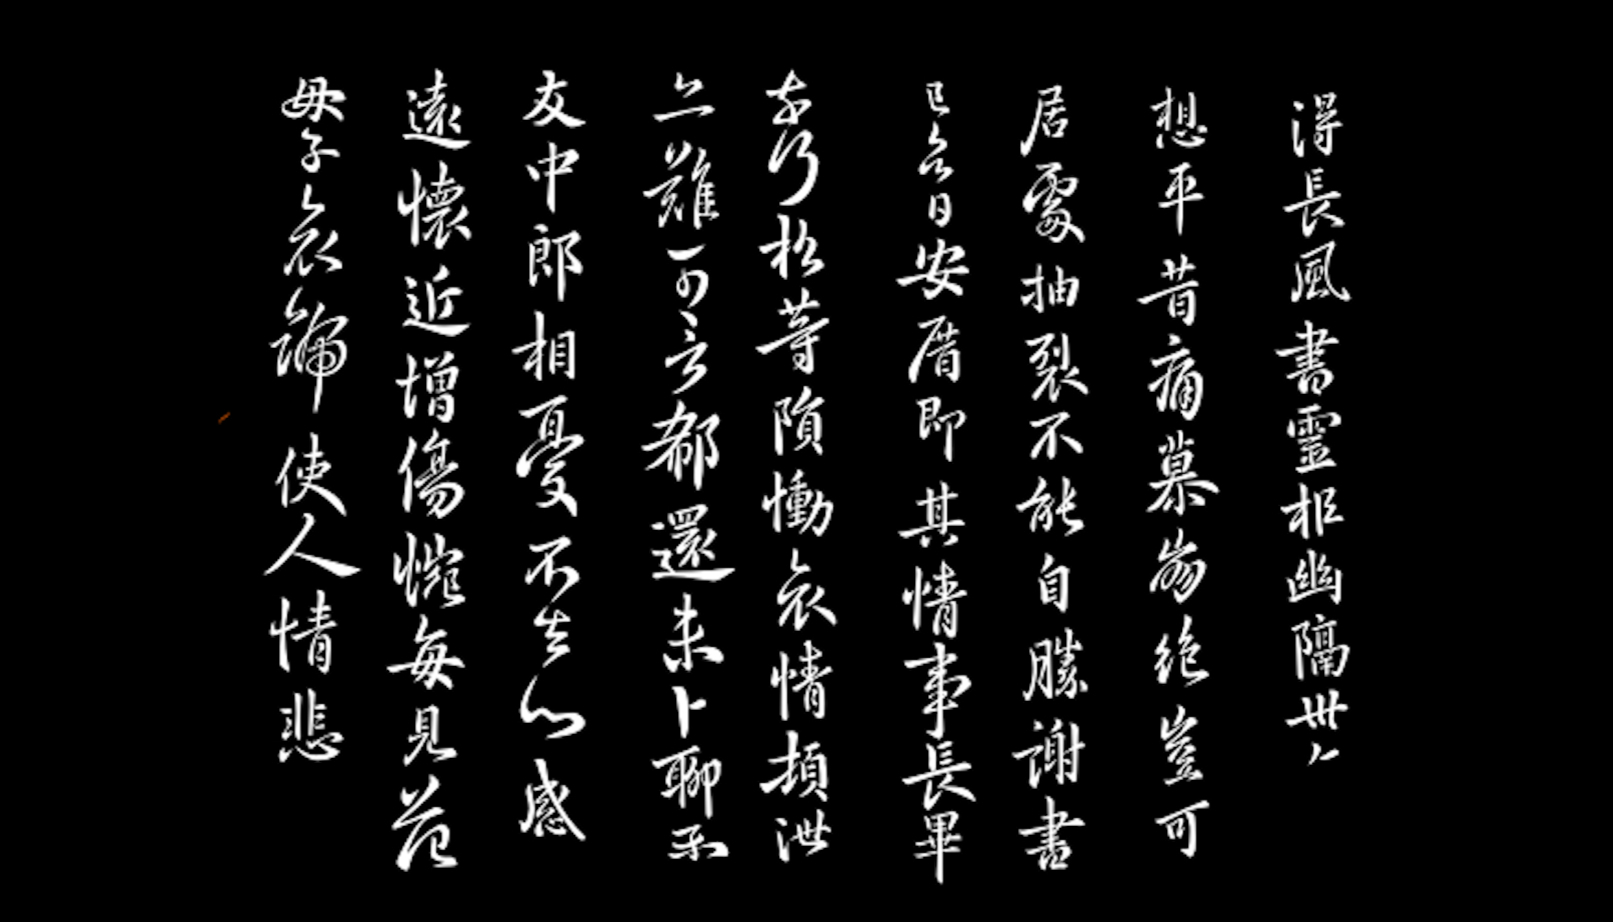 得長風書靈柩幽隔
想平昔痛慕崩絕豈可
居處抽裂不能自勝謝書
已日安厝即其情事長畢
松等隕慟哀情頓泄
亦難可言郗還未卜聊示
友中郎相憂不去心感
遠懷近增傷惋每見范
母子哀號使人情悲